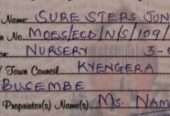 Name: SURE STERS JUN
No. MOES/ECD/N/S/109/
NURSERY 3-
/ Town Council KYENGERA
BUSEMBE
Proprietor(s) Name(s). Ms. NAM